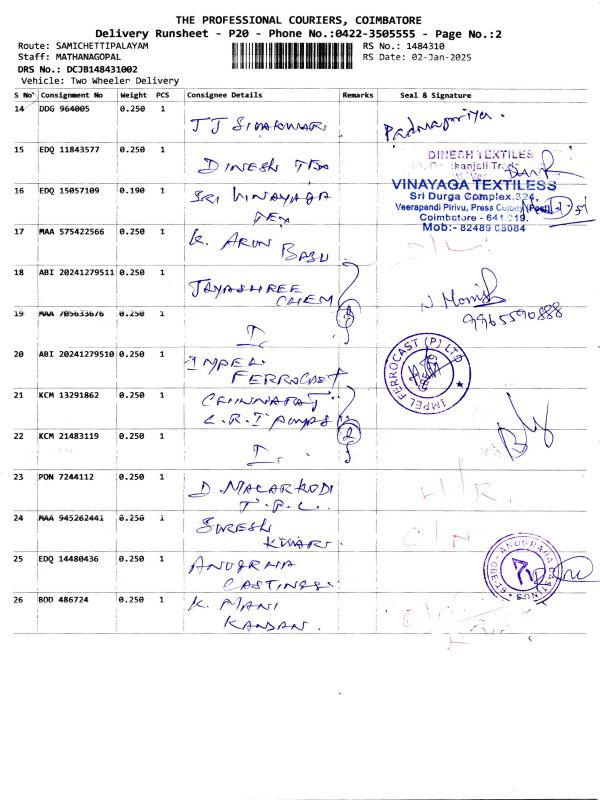 THE PROFESSIONAL COURIERS, COIMBATORE
Delivery Runsheet - P20 - Phone No.:0422-3505555 - Page No.:2
Route: SAMICHETTIPALAYAM RS No.: 1484310
Staff: MATHANAGOPAL RS Date: 02-Jan-2025
DRS No.: DCJB148431002
Vehicle: Two Wheeler Delivery
S No Consignment No Weight PCS Consignee Details Remarks Seal & Signature
14 DDG 964005 0.250 1
JJ SIVAKUMAR Padmapriya.
15 EDQ 11843577 0.250 1 DINESH TEXTILES
DINESH TEX
16 EDQ 15057109 0.190 1 VINAYAGA TEXTILESS
SRI VINAYAGA Sri Durga Complex.324,
TEX Veerapandi Pirivu, Press Colony (Post)
Coimbatore - 641 019.
17 MAA 575422566 0.250 1 Mob:- 82489 08084
K. ARUN
BABU D/L
18 ABI 20241279511 0.250 1
JAYASHREE
CHEM 2
9965590888
19 MAA 705633676 0.250 1
I.
20 ABI 20241279510 0.250 1 IMPEL FERROCAST (P) LTD
IMPEL
FERROCAST
21 KCM 13291862 0.250 1
CHINNARAJ
L.R.I PUMPS
22 KCM 21483119 0.250 1 2
I.
23 PON 7244112 0.250 1
D. MALARKODI
T.P.L.
24 MAA 945262441 0.250 1
SURESH
KUMAR C/N
25 EDQ 14480436 0.250 1 ANUGRAHA CASTINGS
ANUGRHA
CASTINGS
26 BOD 486724 0.250 1
K. MANI
KANDAN.